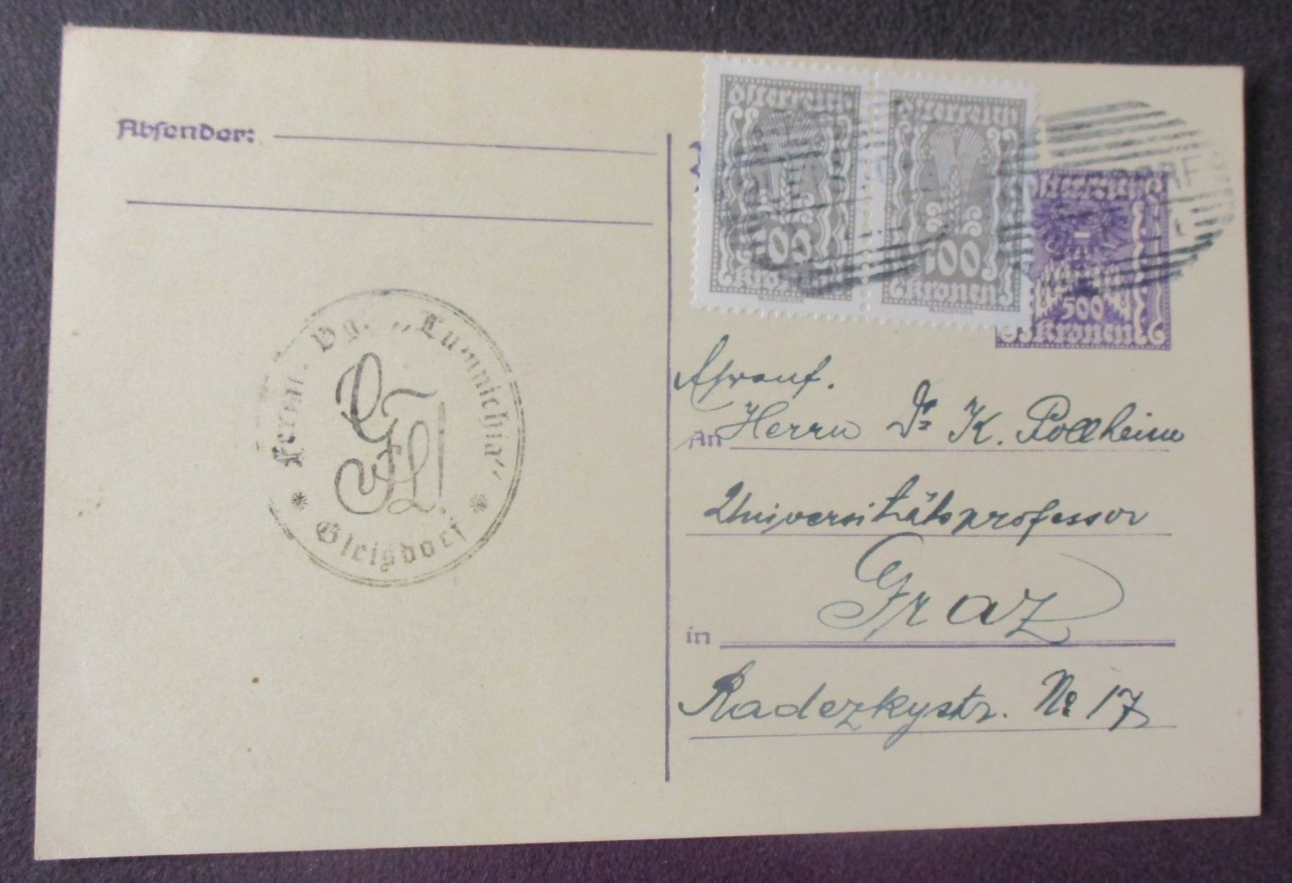 Absender:
Österreich
100
Kronen
Österreich
100
Kronen
Österreich
500
Kronen
Ferial-Vg. „Lumnichia"
G
FL!
* Gleisdorf *
An Herrn Dr K. Pollheim
Universitätsprofessor
in Graz
Radezkystr. No 17